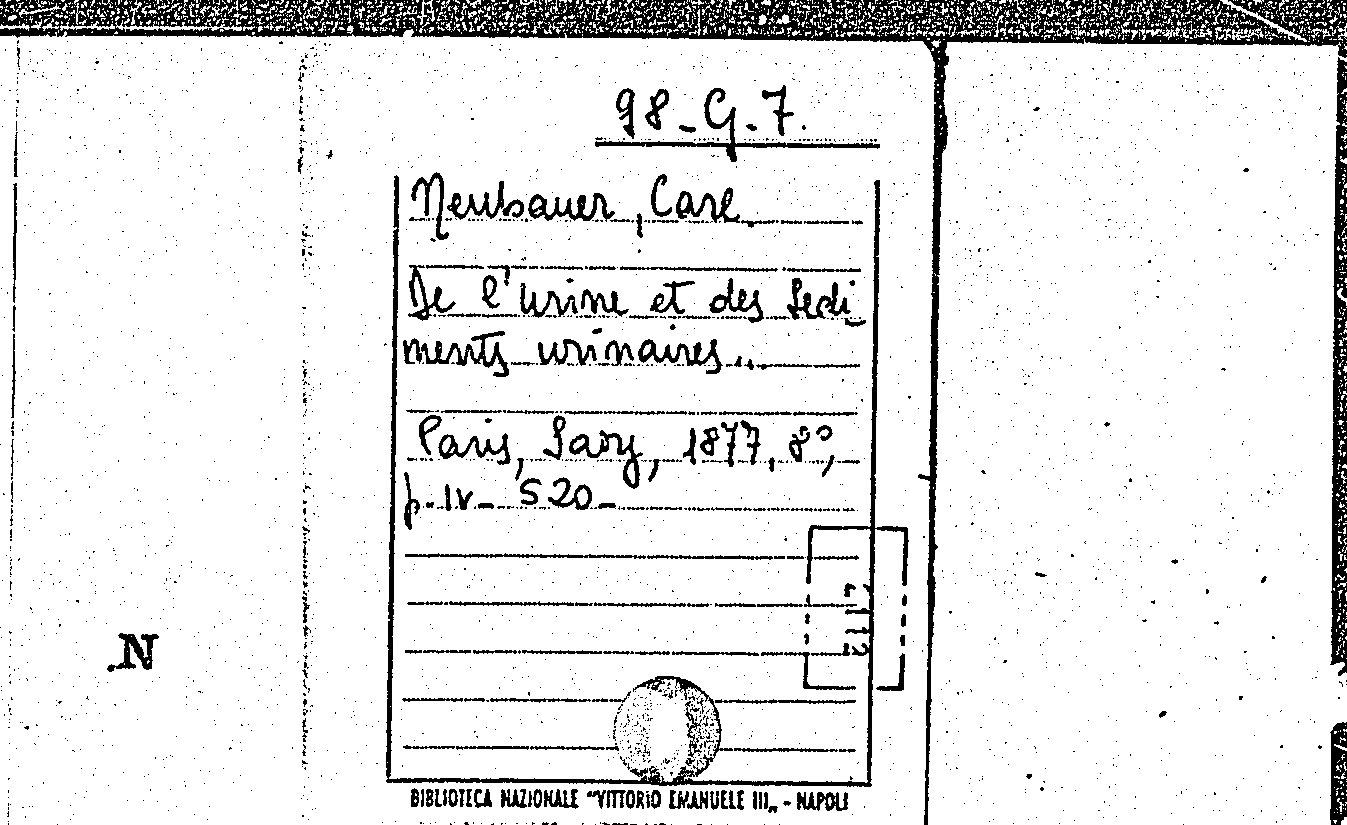 98-G.7.
Neubauer, Carl
De l'urine et des sedi-
ments urinaires...
Paris, Savy, 1877, 8°,
p. IV- 520-
.N
BIBLIOTECA NAZIONALE "VITTORIO EMANUELE III„ - NAPOLI